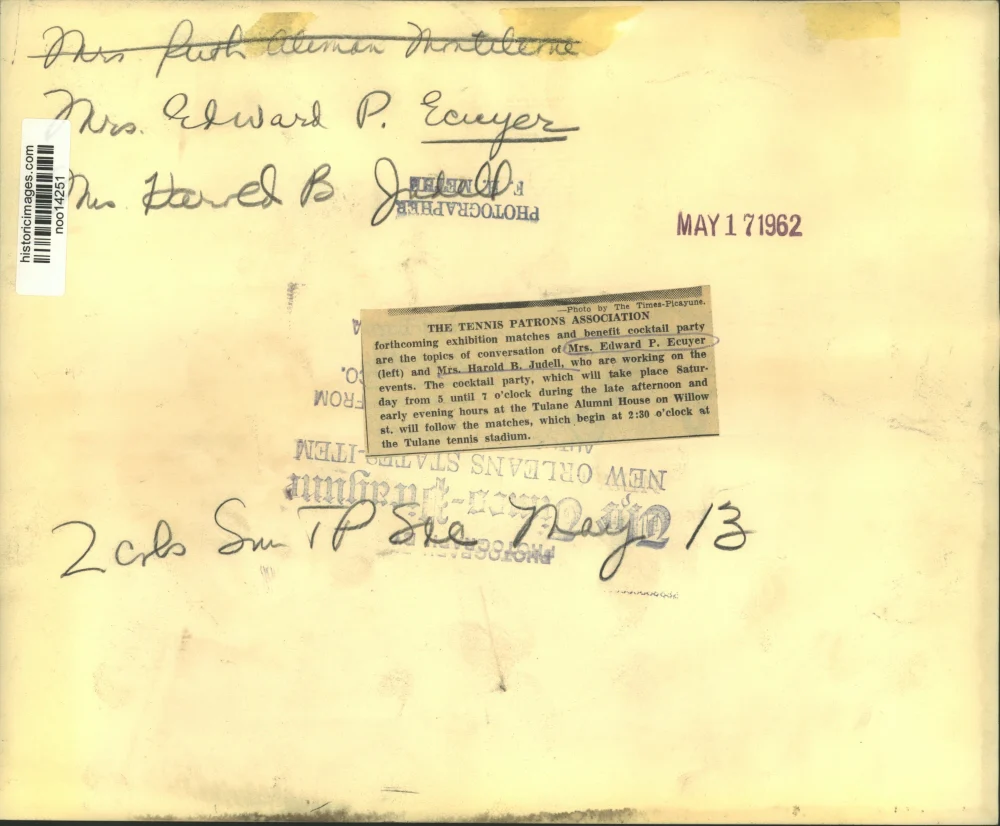 Mrs Ruth Aleman Monteleone
Mrs. Edward P. Ecuyer
Mrs Harold B Judell
historicimages.com
noo14251
PHOTOGRAPHER
MAY 17 1962
—Photo by The Times-Picayune.
THE TENNIS PATRONS ASSOCIATION
forthcoming exhibition matches and benefit cocktail party
are the topics of conversation of Mrs. Edward P. Ecuyer
(left) and Mrs. Harold B. Judell, who are working on the
events. The cocktail party, which will take place Satur-
day from 5 until 7 o'clock during the late afternoon and
early evening hours at the Tulane Alumni House on Willow
st. will follow the matches, which begin at 2:30 o'clock at
the Tulane tennis stadium.
CO.
FROM
NEW ORLEANS STATES-ITEM
The Times-Picayune
2 cols Sun TP Soc May 13